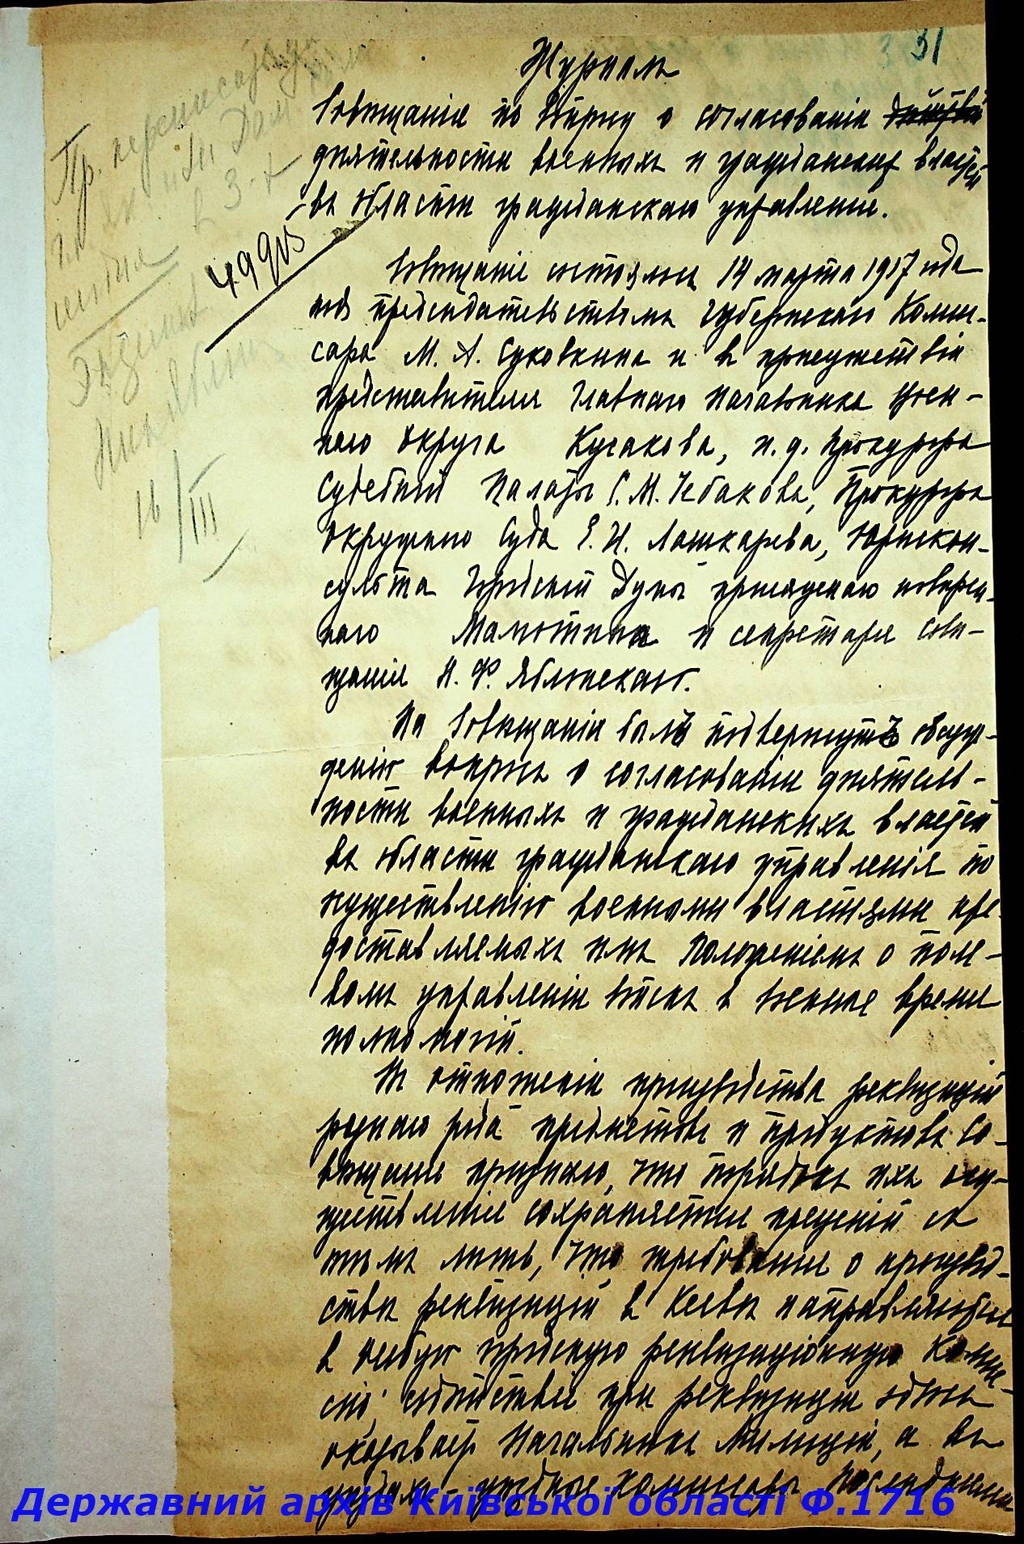 31
Журналъ
Совѣщанія по вопросу о согласованіи
дѣятельности военныхъ и гражданскихъ властей
въ области гражданскаго управленія.
Совѣщаніе состоялось 14 марта 1917 года
подъ предсѣдательствомъ Губернскаго Комис-
сара М. А. Суковкина и въ присутствіи
представителя Главнаго Начальника Воен-
наго Округа Кусакова, и. д. Прокурора
Судебной Палаты С. М. Прокурора
Окружнаго Суда Е. И. Лошкарева, Юрискон-
сульта Городской Думы присяжнаго повѣрен-
наго и секретаря Совѣ-
щанія Н. Ф. Яблонскаго.
На Совѣщаніи былъ подвергнутъ обсуж-
денію вопросъ о согласованіи дѣятель-
ности военныхъ и гражданскихъ властей
въ области гражданскаго управленія по
осуществленію военными властями пре-
доставляемыхъ имъ Положеніемъ о поле-
вомъ управленіи войскъ въ военное время
полномочій.
Въ отношеніи производства реквизицій
разнаго рода предметовъ и продуктовъ Со-
вѣщаніе признало, что порядокъ ихъ осу-
ществленія сохраняется прежній съ
тѣмъ лишь, что требованія о производ-
ствѣ реквизицій въ Кіевѣ направляются
въ особую городскую реквизиціонную Комис-
сію; содѣйствіе при реквизиціи здѣсь
оказываетъ Начальникъ Милиціи, а въ
уѣздахъ - уѣздные Комиссары.
49905
16/III
Державний архів Київської області Ф.1716